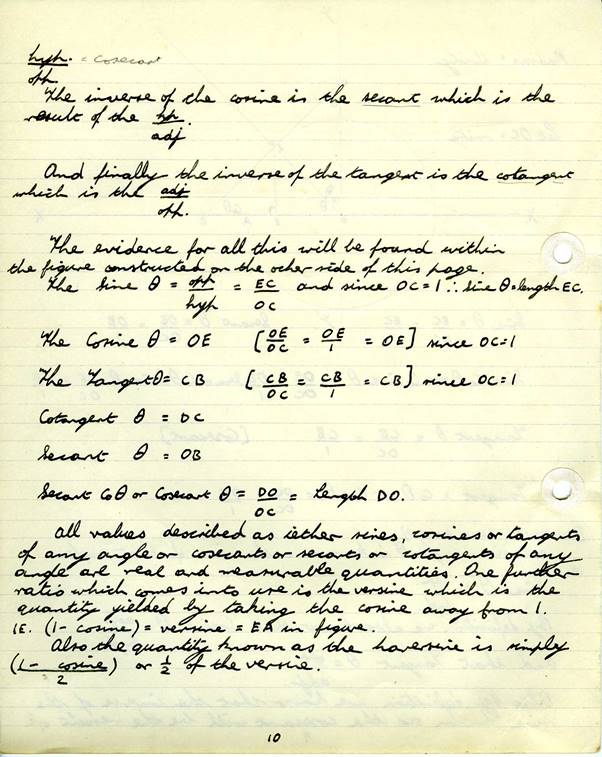 hyp. = cosecant
opp.
The inverse of the cosine is the secant which is the
result of the hyp.
adj
And finally the inverse of the tangent is the cotangent
which is the adj
opp.
The evidence for all this will be found within
the figure constructed on the other side of this page.
The Sine θ = opp/hyp = EC/OC and since OC=1 ∴ Sine θ = length EC.
The Cosine θ = OE [OE/OC = OE/1 = OE] since OC=1
The Tangent θ = CB [CB/OC = CB/1 = CB] since OC=1
Cotangent θ = DC
Secant θ = OB
Secant Coθ or Cosecant θ = DO/OC = length DO.
All values described as iether sines, cosines or tangents
of any angle or cosecants or secants or cotangents of any
angle are real and measurable quantities. One further
ratio which comes into use is the versine which is the
quantity yielded by taking the cosine away from 1.
IE. (1 - cosine) = versine = EA in figure.
Also the quantity known as the haversine is simply
(1 - cosine)/2 or ½ of the versine.
10